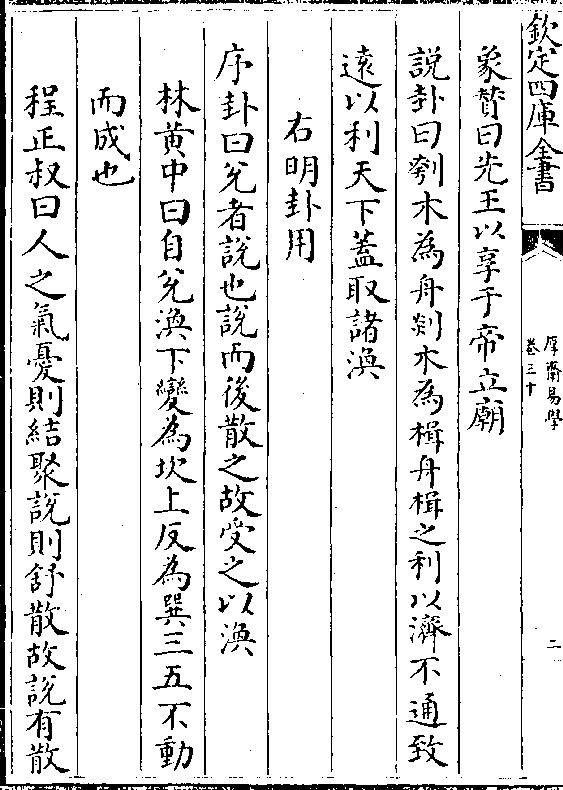 欽定四庫全書
厚齋易學
卷三十
二
象贊曰先王以享于帝立廟
說卦曰刳木為舟剡木為楫舟楫之利以濟不通致
遠以利天下蓋取諸渙
右明卦用
序卦曰兌者說也說而後散之故受之以渙
林黃中曰自兌渙下變為坎上反為巽三五不動
而成也
程正叔曰人之氣憂則結聚說則舒散故說有散